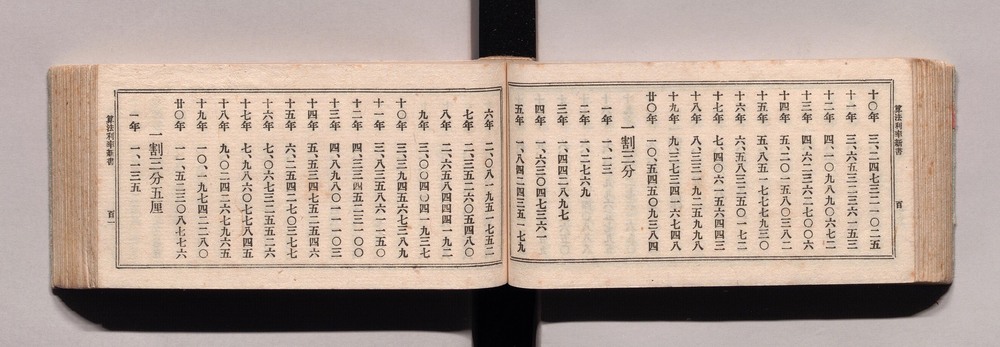 算法利率新書
百
十〇年 三、二四七三二一〇二五
十一年 三、六五三二三六一五三
十二年 四、一〇九八九〇六七二
十三年 四、六二三六二七〇〇六
十四年 五、二〇一五八〇三八二
十五年 五、八五一七七七九三〇
十六年 六、五八三二五〇一七二
十七年 七、四〇六一五六四四三
十八年 八、三三一九二五九九八
十九年 九、三七三四一六七四八
廿〇年 一〇、五四五〇九三八四
一割三分
一年 一、一三
二年 一、二七六九
三年 一、四四二八九七
四年 一、六三〇四七三六一
五年 一、八四二四三五一七九
六年 二、〇八一九五一七五二
七年 二、三五二六〇五四八〇
八年 二、六五八四四四一九二
九年 三、〇〇四〇四一九三七
十〇年 三、三九四五六七三八九
十一年 三、八三五八六一一五〇
十二年 四、三三四五二三一〇〇
十三年 四、八九八〇一一一〇三
十四年 五、五三四七五二五四六
十五年 六、二五四二七〇三七七
十六年 七、〇六七三二五五二六
十七年 七、九八六〇七七八四五
十八年 九、〇二四二六七九六五
十九年 一〇、一九七四二二八〇
廿〇年 一一、五二三〇八七七六
一割三分五厘
一年 一、一三五
算法利率新書
百一